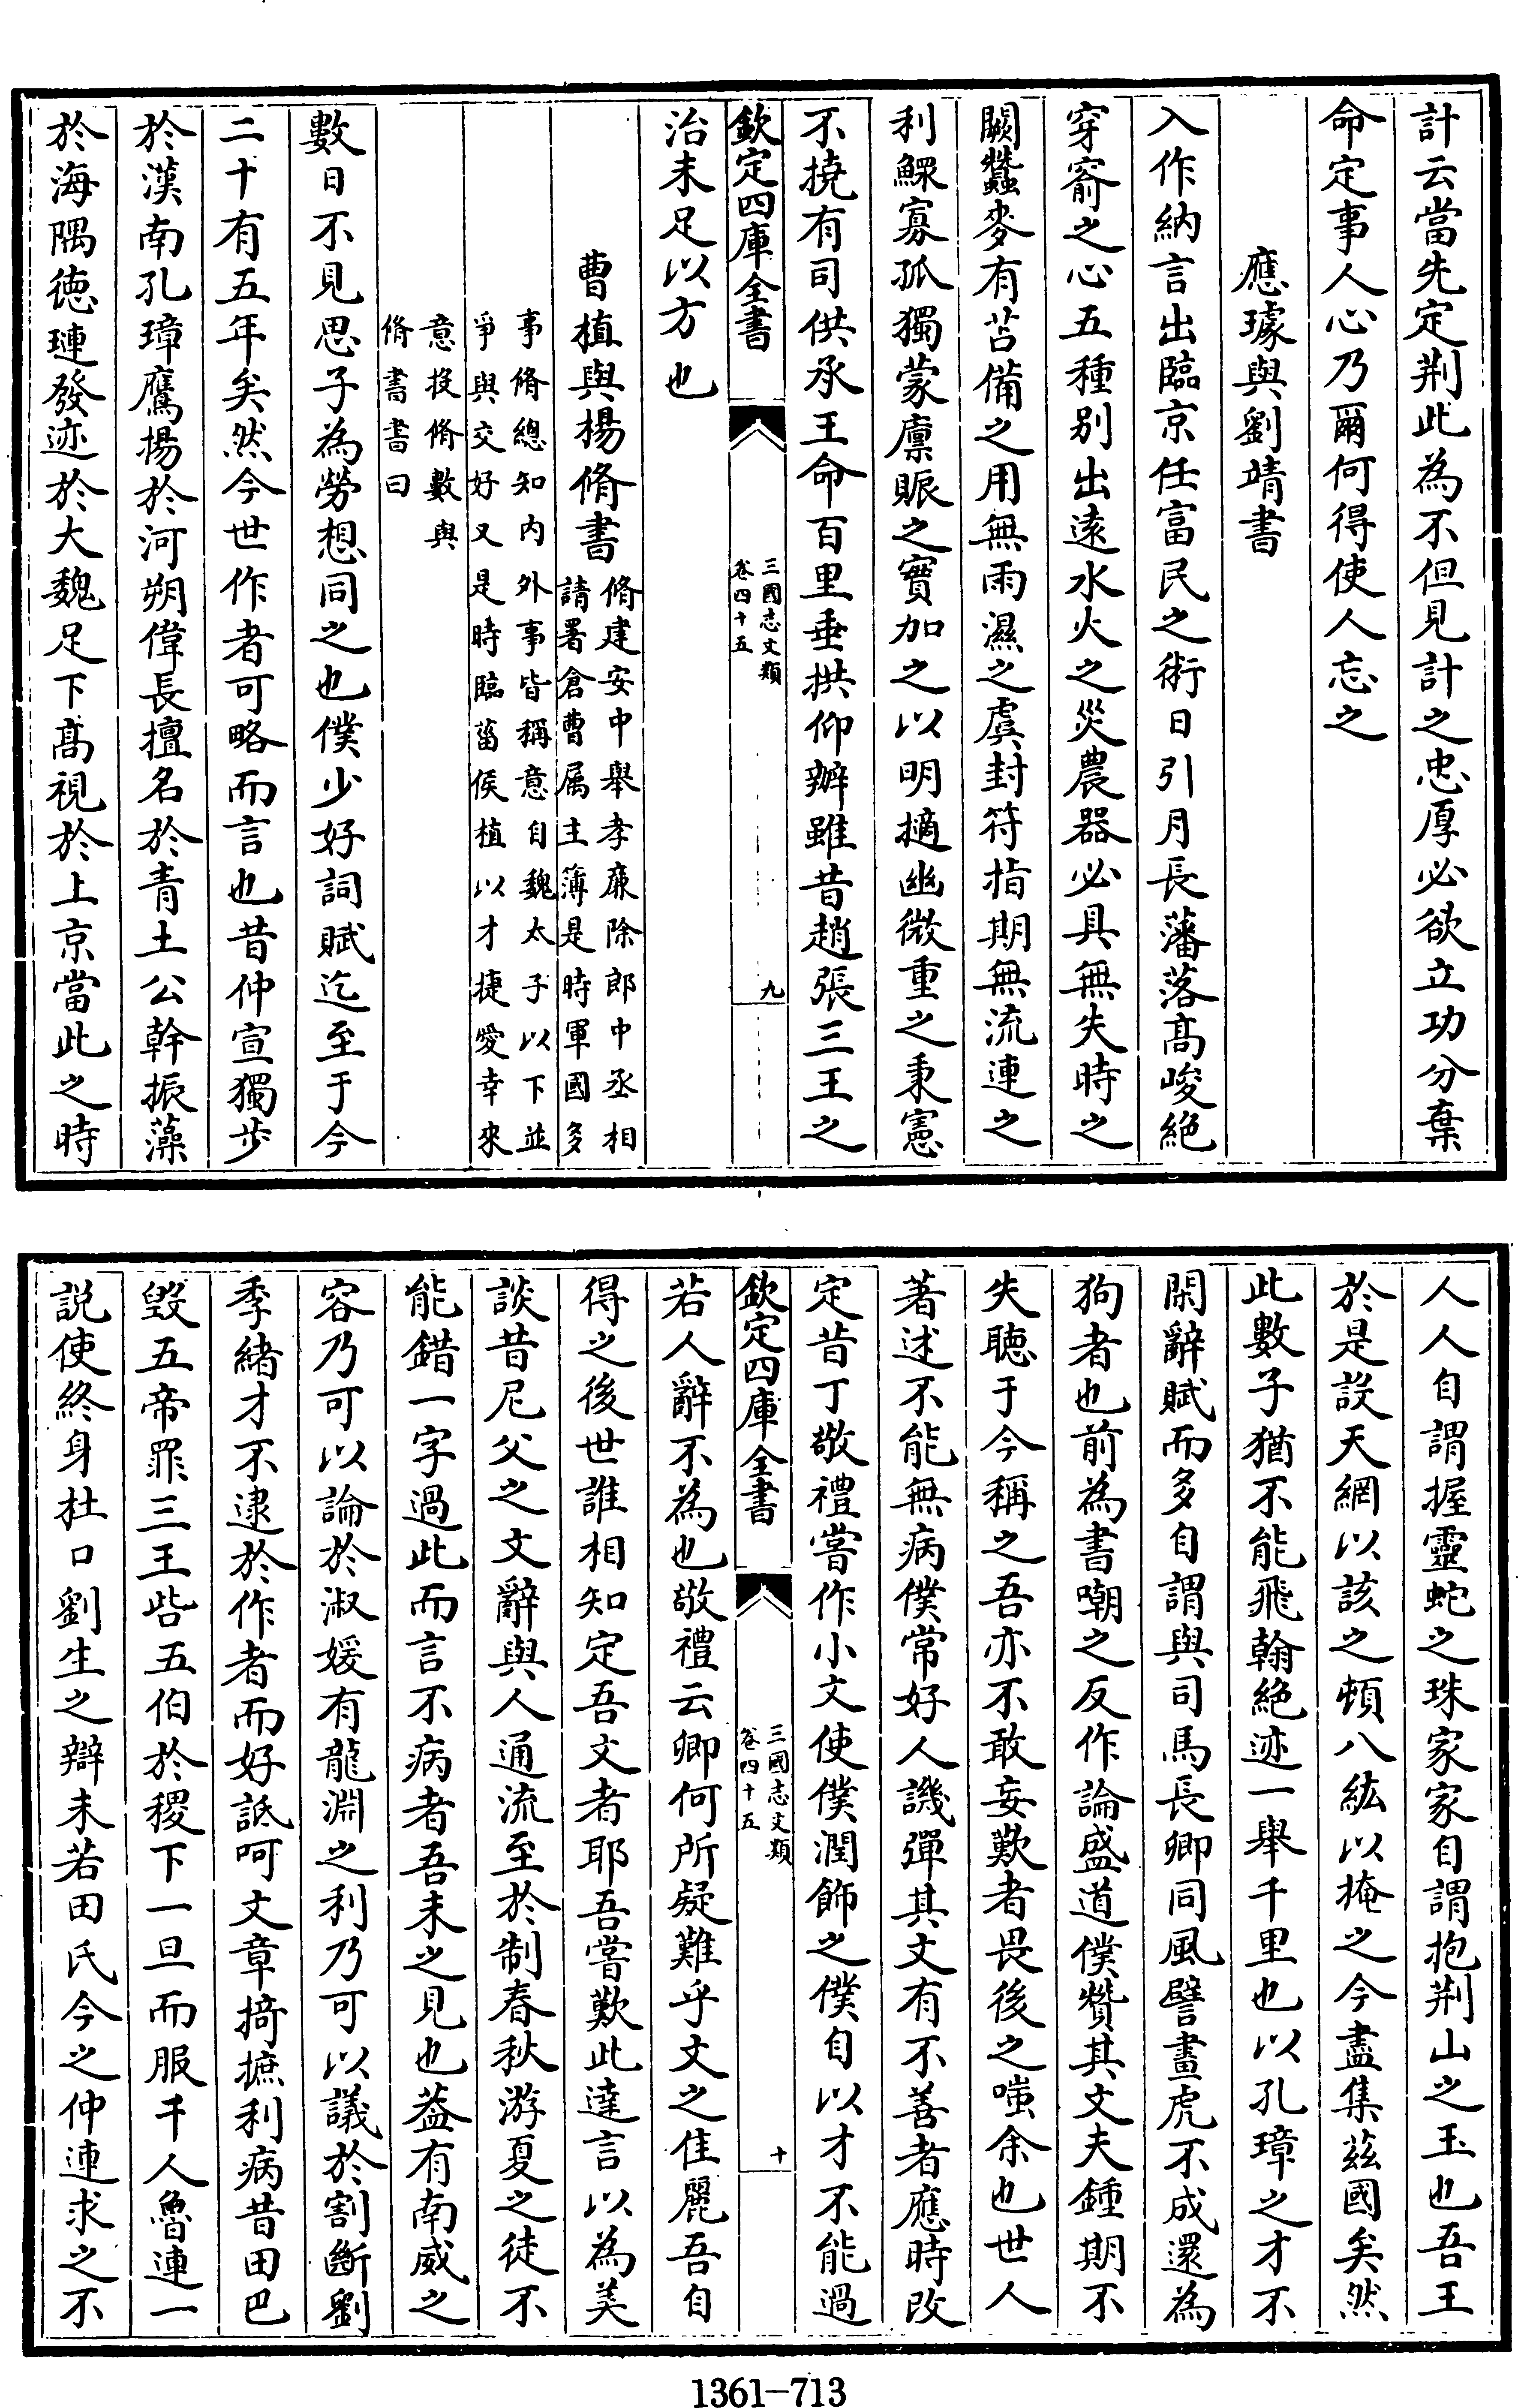 計云當先定荆此為不但見計之忠厚必欲立功分棄
命定事人心乃爾何得使人忘之
應璩與劉靖書
入作納言出臨京任富民之術日引月長藩落髙峻絶
穿窬之心五種别出逺水火之災農器必具無失時之
闕蠶麥有苫備之用無雨濕之虞封符指期無流連之
利鰥寡孤獨蒙廩賑之實加之以明摘幽微重之秉憲
不撓有司供承王命百里垂拱仰辦雖昔趙張三王之
欽定四庫全書
三國志文類
卷四十五
九
治未足以方也
曹植與楊脩書
脩建安中舉孝廉除郎中丞相
請署倉曹属主簿是時軍國多
事脩總知内外事皆稱意自魏太子以下並
爭與交好又是時臨菑侯植以才捷愛幸來
意投脩數與
脩書書曰
數日不見思子為勞想同之也僕少好詞賦迄至于今
二十有五年矣然今世作者可略而言也昔仲宣獨步
於漢南孔璋鷹揚於河朔偉長擅名於青土公幹振藻
於海隅徳璉發迹於大魏足下髙視於上京當此之時
人人自謂握靈蛇之珠家家自謂抱荆山之玉也吾王
於是設天網以該之頓八紘以掩之今盡集茲國矣然
此數子猶不能飛翰絶迹一舉千里也以孔璋之才不
閑辭賦而多自謂與司馬長卿同風譬畫虎不成還為
狗者也前為書嘲之反作論盛道僕贊其文夫鍾期不
失聴于今稱之吾亦不敢妄歎者畏後之嗤余也世人
著述不能無病僕常好人譏彈其文有不善者應時改
定昔丁敬禮嘗作小文使僕潤飾之僕自以才不能過
欽定四庫全書
三國志文類
卷四十五
十
若人辭不為也敬禮云卿何所疑難乎文之佳麗吾自
得之後世誰相知定吾文者耶吾嘗歎此達言以為美
談昔尼父之文辭與人通流至於制春秋游夏之徒不
能錯一字過此而言不病者吾未之見也葢有南威之
容乃可以論於淑媛有龍淵之利乃可以議於割斷劉
季緒才不逮於作者而好詆呵文章掎摭利病昔田巴
毁五帝罪三王呰五伯於稷下一旦而服千人魯連一
説使終身杜口劉生之辯未若田氏今之仲連求之不
1361-713